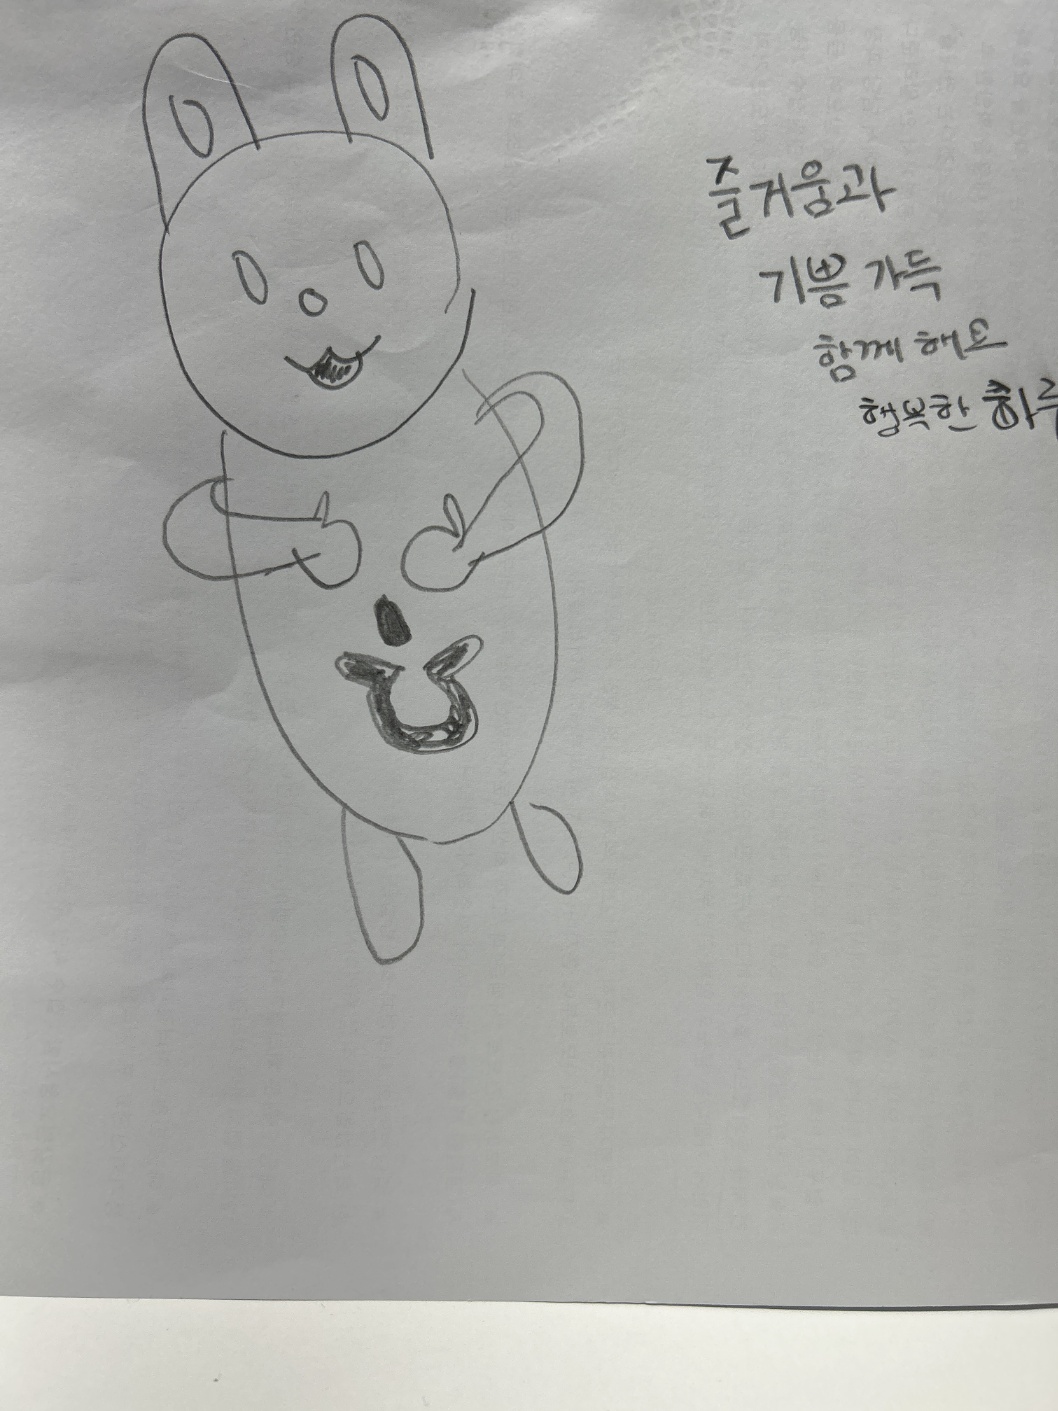 즐거움과
기쁨 가득
함께 해요
행복한 하루